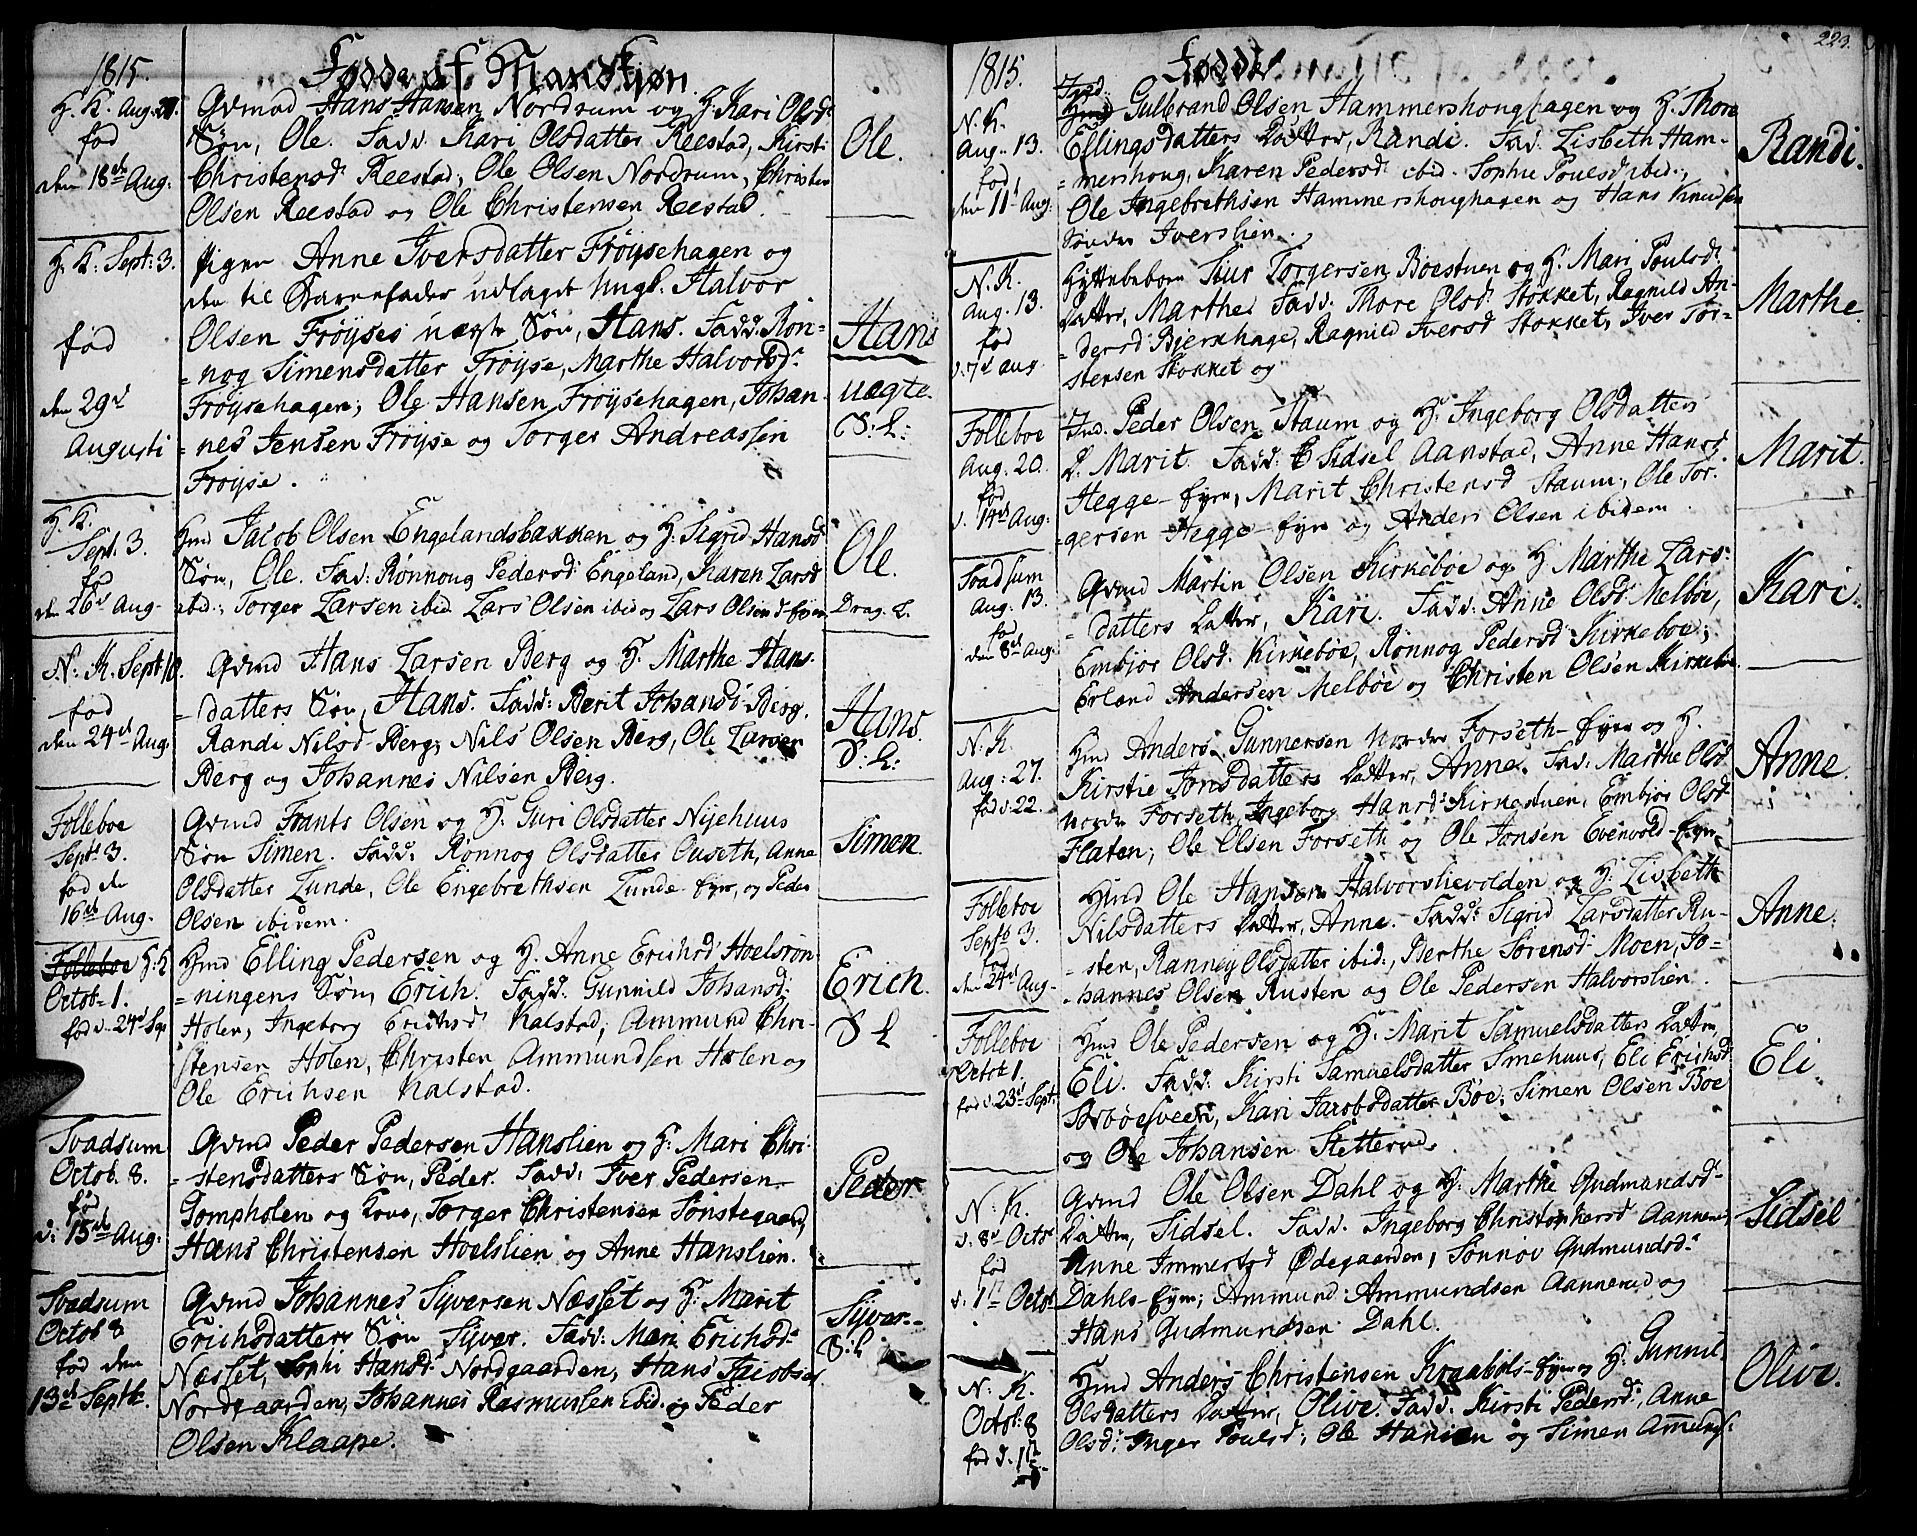 1815.
Fødde af Mandkjøn
H. K. Aug. 27.
fød
den 18de Aug.
Gvmd Hans Hansen Nordrum og H. Kari Olsd:
Søn, Ole. Fadd. Kari Olsdatter Reestad, Kirsti
Christensd: Reestad, Ole Olsen Nordrum, Christen
Olsen Reestad og Ole Christensen Reestad.
Ole.
H. K. Sept: 3.
fød
den 29d
Augusti
Pigen Anne Iversdatter Frøysehagen og
den til Barnefader udlagt Ungk. Halvor
Olsen Frøyses uægte Søn, Hans. Fadd. Røn=
=nog Simensdatter Frøyse, Marthe Halvorsd:
Frøysehagen; Ole Hansen Frøysehagen, Johan=
=nes Jensen Frøyse og Torger Andreassen
Frøyse.
Hans
uægte.
S: L:
H. K.
Sept. 3.
fød
den 26d Aug.
Hmd Jacob Olsen Engelandsbakken og H. Sigrid Hansd
Søn, Ole. Fad: Rønnoug Pedersd: Engeland, Karen Larsd
ibid; Torger Larsen ibid Lars Olsen ibid og Lars Olsen d-fyrn
Ole.
Drag. L.
N: K. Sept 10.
fød
den 24d Aug.
Gvmd Hans Larsen Berg og H. Marthe Hans-
=datters Søn, Hans. Fadd: Berit Johansd: Berg.
Randi Nilsd Berg; Nils Olsen Berg, Ole Larsen
Berg og Johannes Nilsen Berg.
Hans.
S: L:
Folleboe
Septb 3.
fød de
16de Aug.
Gvmd Frants Olsen og H. Guri Olsdatter Nijehuus
Søn Simen. Fadd: Rønnog Olsdatter Ouseth, Anne
Olsdatter Lunde, Ole Engebrethsen Lunde-fyrn, og Peder
Olsen ibidem.
Simen.
Folleboe H: K
Octob. 1.
fød d. 24d Sep
Hmd Elling Pedersen og H. Anne Erichsd Hoelsrøn
=ningens Søn, Erich. Fadd. Gunnild Johansd:
Holen, Ingeborg Erichsd Kalstad; Ammund Chri-
stensen Holen, Christen Ammundsen Holen og
Ole Erichsen Kalstad.
Erich.
S L
Svadsum
Octob. 8.
fød
d: 15de Aug:
Gvmd Peder Pedersen Hanslien og H: Mari Chri-
=stensdatters Søn, Peder. Fadd. Iver Pedersen
Gompholen og Kone, Torger Christensen Sønstegaard,
Hans Christensen Hoelslien og Anne Hanslien.
Peder
Svadsum
Octob 8
fød den
13de Septb.
Gvmd Johannes Syversen Næsset og H: Marit
Erichsdatters Søn Syver. Fadd: Mari Erichsd:
Næsset, Sophi Hansd: Nordgaarden, Hans Jacobsen
Nordgaarden, Johannes Rasmussen ibid. og Peder
Olsen Klaape.
Syver.
S: L
1815.
Fødde
223.
N. K.
Aug. 13.
fød
den 11d Aug.
Ind.
Gulbrand Olsen Hammershoughagen og H. Thore
Ellingsdatters Datter, Randi. Fad. Lisbeth Ham-
=mershoug, Karen Pedersd: ibid. Sophie Poulsd ibid.,
Ole Ingebrethsen Hammershoughagen og Hans Knudsen
Søndre Iverslien.
Randi.
N. K.
Aug. 13.
fød
d. 7d Aug
Hyttebeboer Siur Torgersen Boestuen og H. Mari Poulsd:
Datter, Marthe. Fadd. Thore Olsd: Stokket, Ragnild An-
=dersd: Bjerkhage, Ragnild Iversd Stokket, Iver Tor-
stensen Stokket og
Marthe
Folleboe
Aug. 20.
fød
d. 14de Aug:
Ind. Peder Olsen Staum og H. Ingeborg Olsdatters
D. Marit. Fadd: Sidsel Aanstad, Anne Hansd.
Hegge-fyrn, Marit Christensd Staum, Ole Tor-
=gersen Hegge-fyrn og Anders Olsen ibidem
Marit.
Svadsum
Aug. 13.
fød
den 8de Aug.
Gvmd Martin Olsen Kirkebøe og H. Marthe Lars-
=datters Datter, Kari. Fadd. Anne Olsd: Melbøe,
Embjør Olsd: Kirkebøe, Rønnog Pedersd Kirkeboe;
Erland Andersen Melbøe og Christen Olsen Kirkebøe.
Kari.
N. K.
Aug: 27.
fød d. 22.
Hmd Anders Gunnersen Nordre Forseth-fyrn og H.
Kirstie Jonsdatters Datter, Anne. Fad: Marthe Olsd
Nordre Forseth, Ingeborg Hansd: Kirkestuen, Embjør Olsd:
Flaten; Ole Olsen Forseth og Ole Jonsen Evenvold-fyrn
Anne.
Folleboe
Septb 3.
fød
den 24d Aug.
Hmd Ole Hansen Halvorslievolden og H: Lisbeth
Nilsdatters Datter, Anne. Fadd: Sigrid Larsdatter Ru-
=sten, Ranney Olsdatter ibid., Berthe Sørensd: Moen, Jo=
=hannes Olsen Rusten og Ole Pedersen Halvorslien.
Anne.
Folleboe
Octob 1.
fød d. 23d Sept.
Hmd Ole Pedersen og H. Marit Samuelsdatters Datter,
Eli. Fadd. Kirsti Samuelsdatter Smehuus, Eli Erichsd:
, Kari Jacobsdatter Bøe; Simen Olsen Bøe
og Ole Johansen Sletterud.
Eli
N. K.
d. 8d Octb
fød
d. 1st Octob
Gvmd Ole Olsen Dahl og H. Marthe Gudmundsd-
Datter, Sidsel. Fadd. Ingeborg Christophersd Aannerud
Anne Immerstad Ødegaarden, Sønnøv Gudmundsd:
Dahls-fyrn; Ammund Ammundsen Aannerud og
Hans Gudmundsen Dahl.
Sidsel
N: K.
Octob: 8
fød d. 1st
Hmd Anders Christensen Kraabøls-fyrn og H. Gunnil
Olsdatters Datter, Olive. Fadd: Kirsti Pedersd:, Anne
Olsd: Inger Poulsd; Ole Hansen og Simen Ammunds:
Olive.